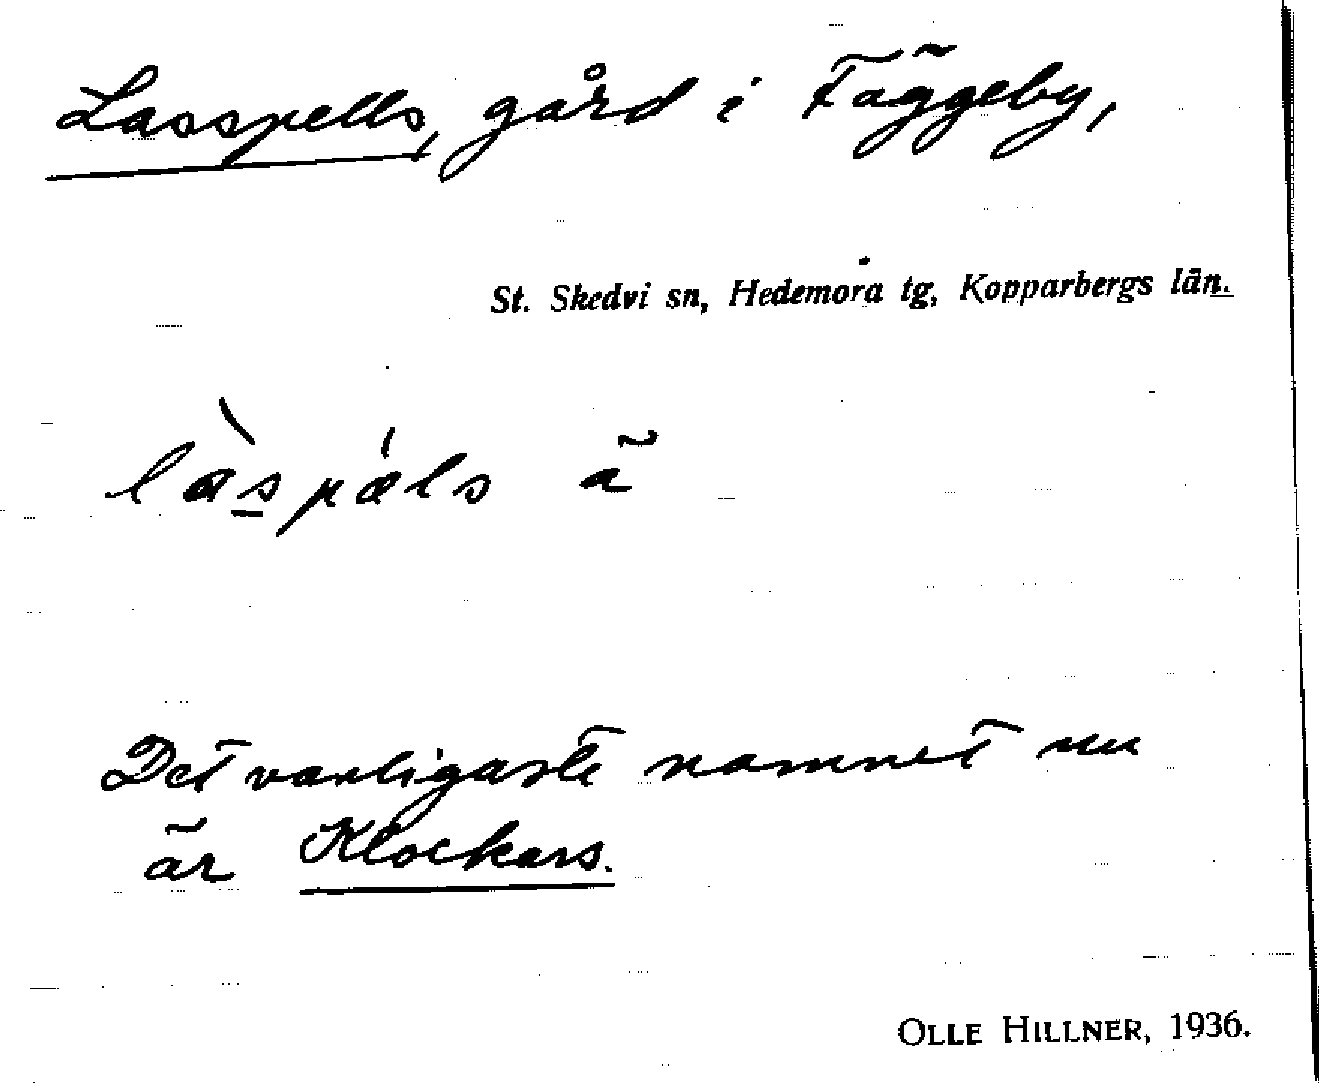 Lasspells, gård i Fäggeby,
St. Skedvi sn, Hedemora tg, Kopparbergs län.
làspæ̍ls ã
Det vanligaste namnet nu
är Klockars.
OLLE HILLNER, 1936.